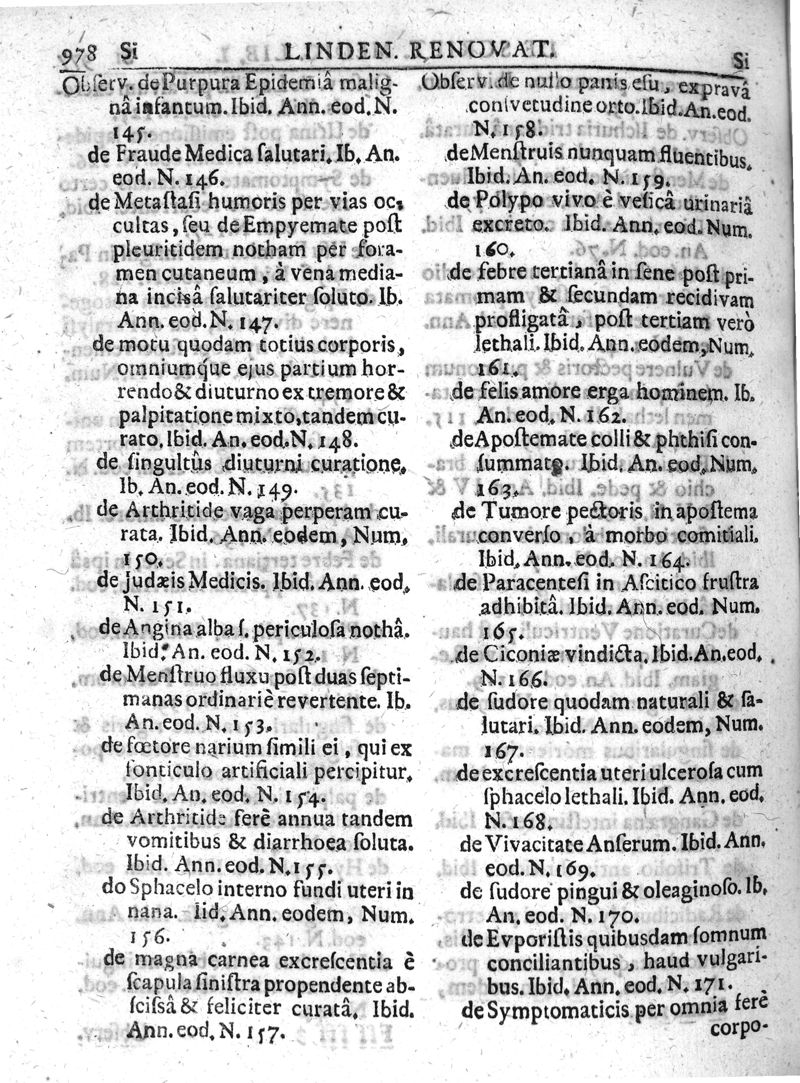 978 Si LINDEN. RENOVAT. Si
Obſerv. de Purpura Epidemiâ malig-
nâ infantum. Ibid. Ann. eod. N.
145.
de Fraude Medica ſalutari. Ib. An.
eod. N. 146.
de Metaſtaſi humoris per vias oc,
cultas, ſeu de Empyemate poſt
pleuritidem notham per fora-
men cutaneum, à vena media-
na incisâ ſalutariter ſoluto. Ib.
Ann. eod. N. 147.
de motu quodam totius corporis,
omniumq́ue ejus partium hor-
rendo & diuturno ex tremore &
palpitatione mixto, tandem cu-
rato. Ibid. An. eod. N. 148.
de ſingultûs diuturni curatione,
Ib. An. eod. N. 149.
de Arthritide vaga perperam cu-
rata. Ibid. Ann. eodem, Num,
150.
de Judæis Medicis. Ibid. Ann. eod,
N. 151.
de Angina alba ſ. periculoſa nothâ.
Ibid. An. eod. N. 152.
de Menſtruo fluxu poſt duas ſepti-
manas ordinariè revertente. Ib.
An. eod. N. 153.
de fœtore narium ſimili ei, qui ex
fonticulo artificiali percipitur,
Ibid. An. eod. N. 154.
de Arthritide ferè annua tandem
vomitibus & diarrhoea ſoluta.
Ibid. Ann. eod. N. 155.
do Sphacelo interno fundi uteri in
nana. Iid. Ann. eodem, Num.
156.
de magna carnea excreſcentia è
ſcapula ſiniſtra propendente ab-
ſciſsâ & feliciter curatâ. Ibid.
Ann. eod. N. 157.
Obſerv. de nullo panis eſu, ex pravâ
conſvetudine orto. Ibid. An. eod.
N. 158.
de Menſtruis nunquam fluentibus.
Ibid. An. eod. N. 159.
de Polypo vivo è veſicâ urinariâ
excreto. Ibid. Ann. eod. Num.
160.
de febre tertianâ in ſene poſt pri-
mam & ſecundam recidivam
profligatâ, poſt tertiam verò
lethali. Ibid. Ann. eodem, Num.
161.
de felis amore erga hominem. Ib.
An. eod. N. 162.
de Apoſtemate colli & phthiſi con-
ſummatę. Ibid. An. eod. Num.
163.
de Tumore pectoris in apoſtema
converſo, à morbo comitiali.
Ibid. Ann. eod. N. 164.
de Paracenteſi in Aſcitico fruſtra
adhibitâ. Ibid. Ann. eod. Num.
165.
de Ciconiæ vindicta. Ibid. An. eod.
N. 166.
de ſudore quodam naturali & ſa-
lutari. Ibid. Ann. eodem, Num.
167.
de excreſcentia uteri ulceroſa cum
ſphacelo lethali. Ibid. Ann. eod.
N. 168.
de Vivacitate Anſerum. Ibid. Ann.
eod. N. 169.
de ſudore pingui & oleaginoſo. Ib.
An. eod. N. 170.
de Evporiſtis quibusdam ſomnum
conciliantibus, haud vulgari-
bus. Ibid. Ann. eod. N. 171.
de Symptomaticis per omnia ferè
corpo-